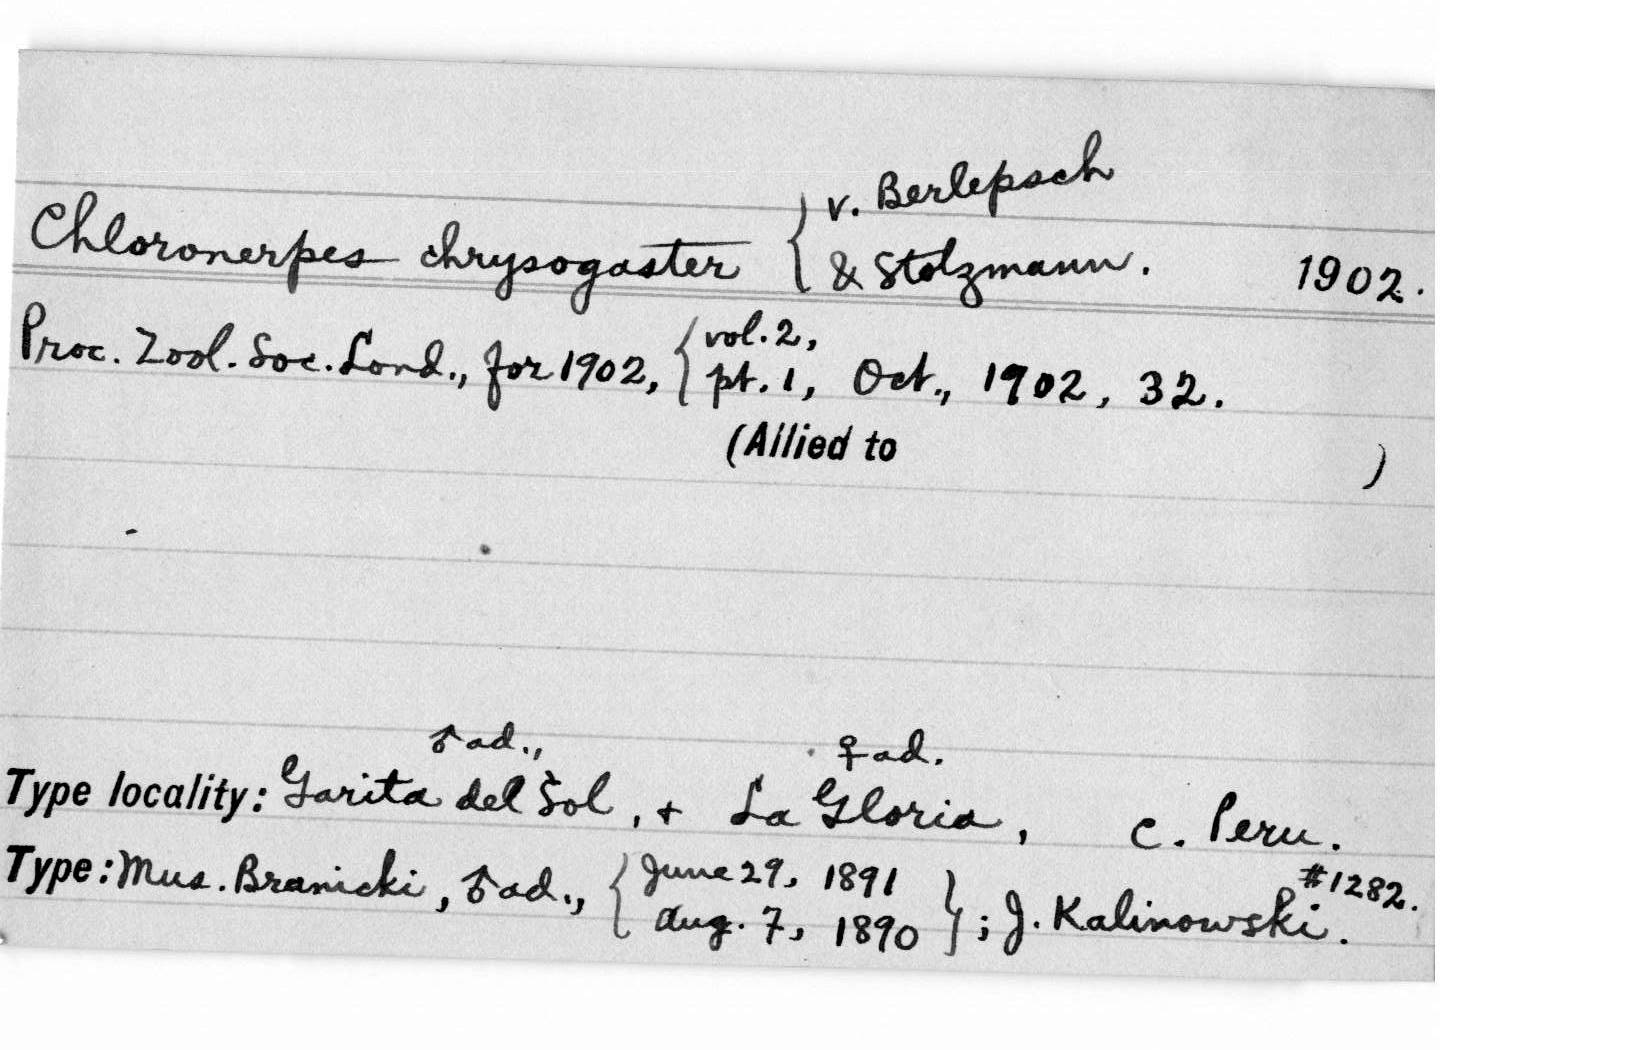 v. Berlepsch
Chloronerpes chrysogaster { & Stolzmann. 1902.
Proc. Zool. Soc. Lond., for 1902, { vol. 2,
pt. 1, Oct., 1902, 32.
(Allied to )
♂ad., ♀ad.
Type locality: Garita del Sol, + La Gloria, C. Peru.
Type: Mus. Branicki, ♂ad., { June 29, 1891 #1282.
Aug. 7, 1890 } ; J. Kalinowski.